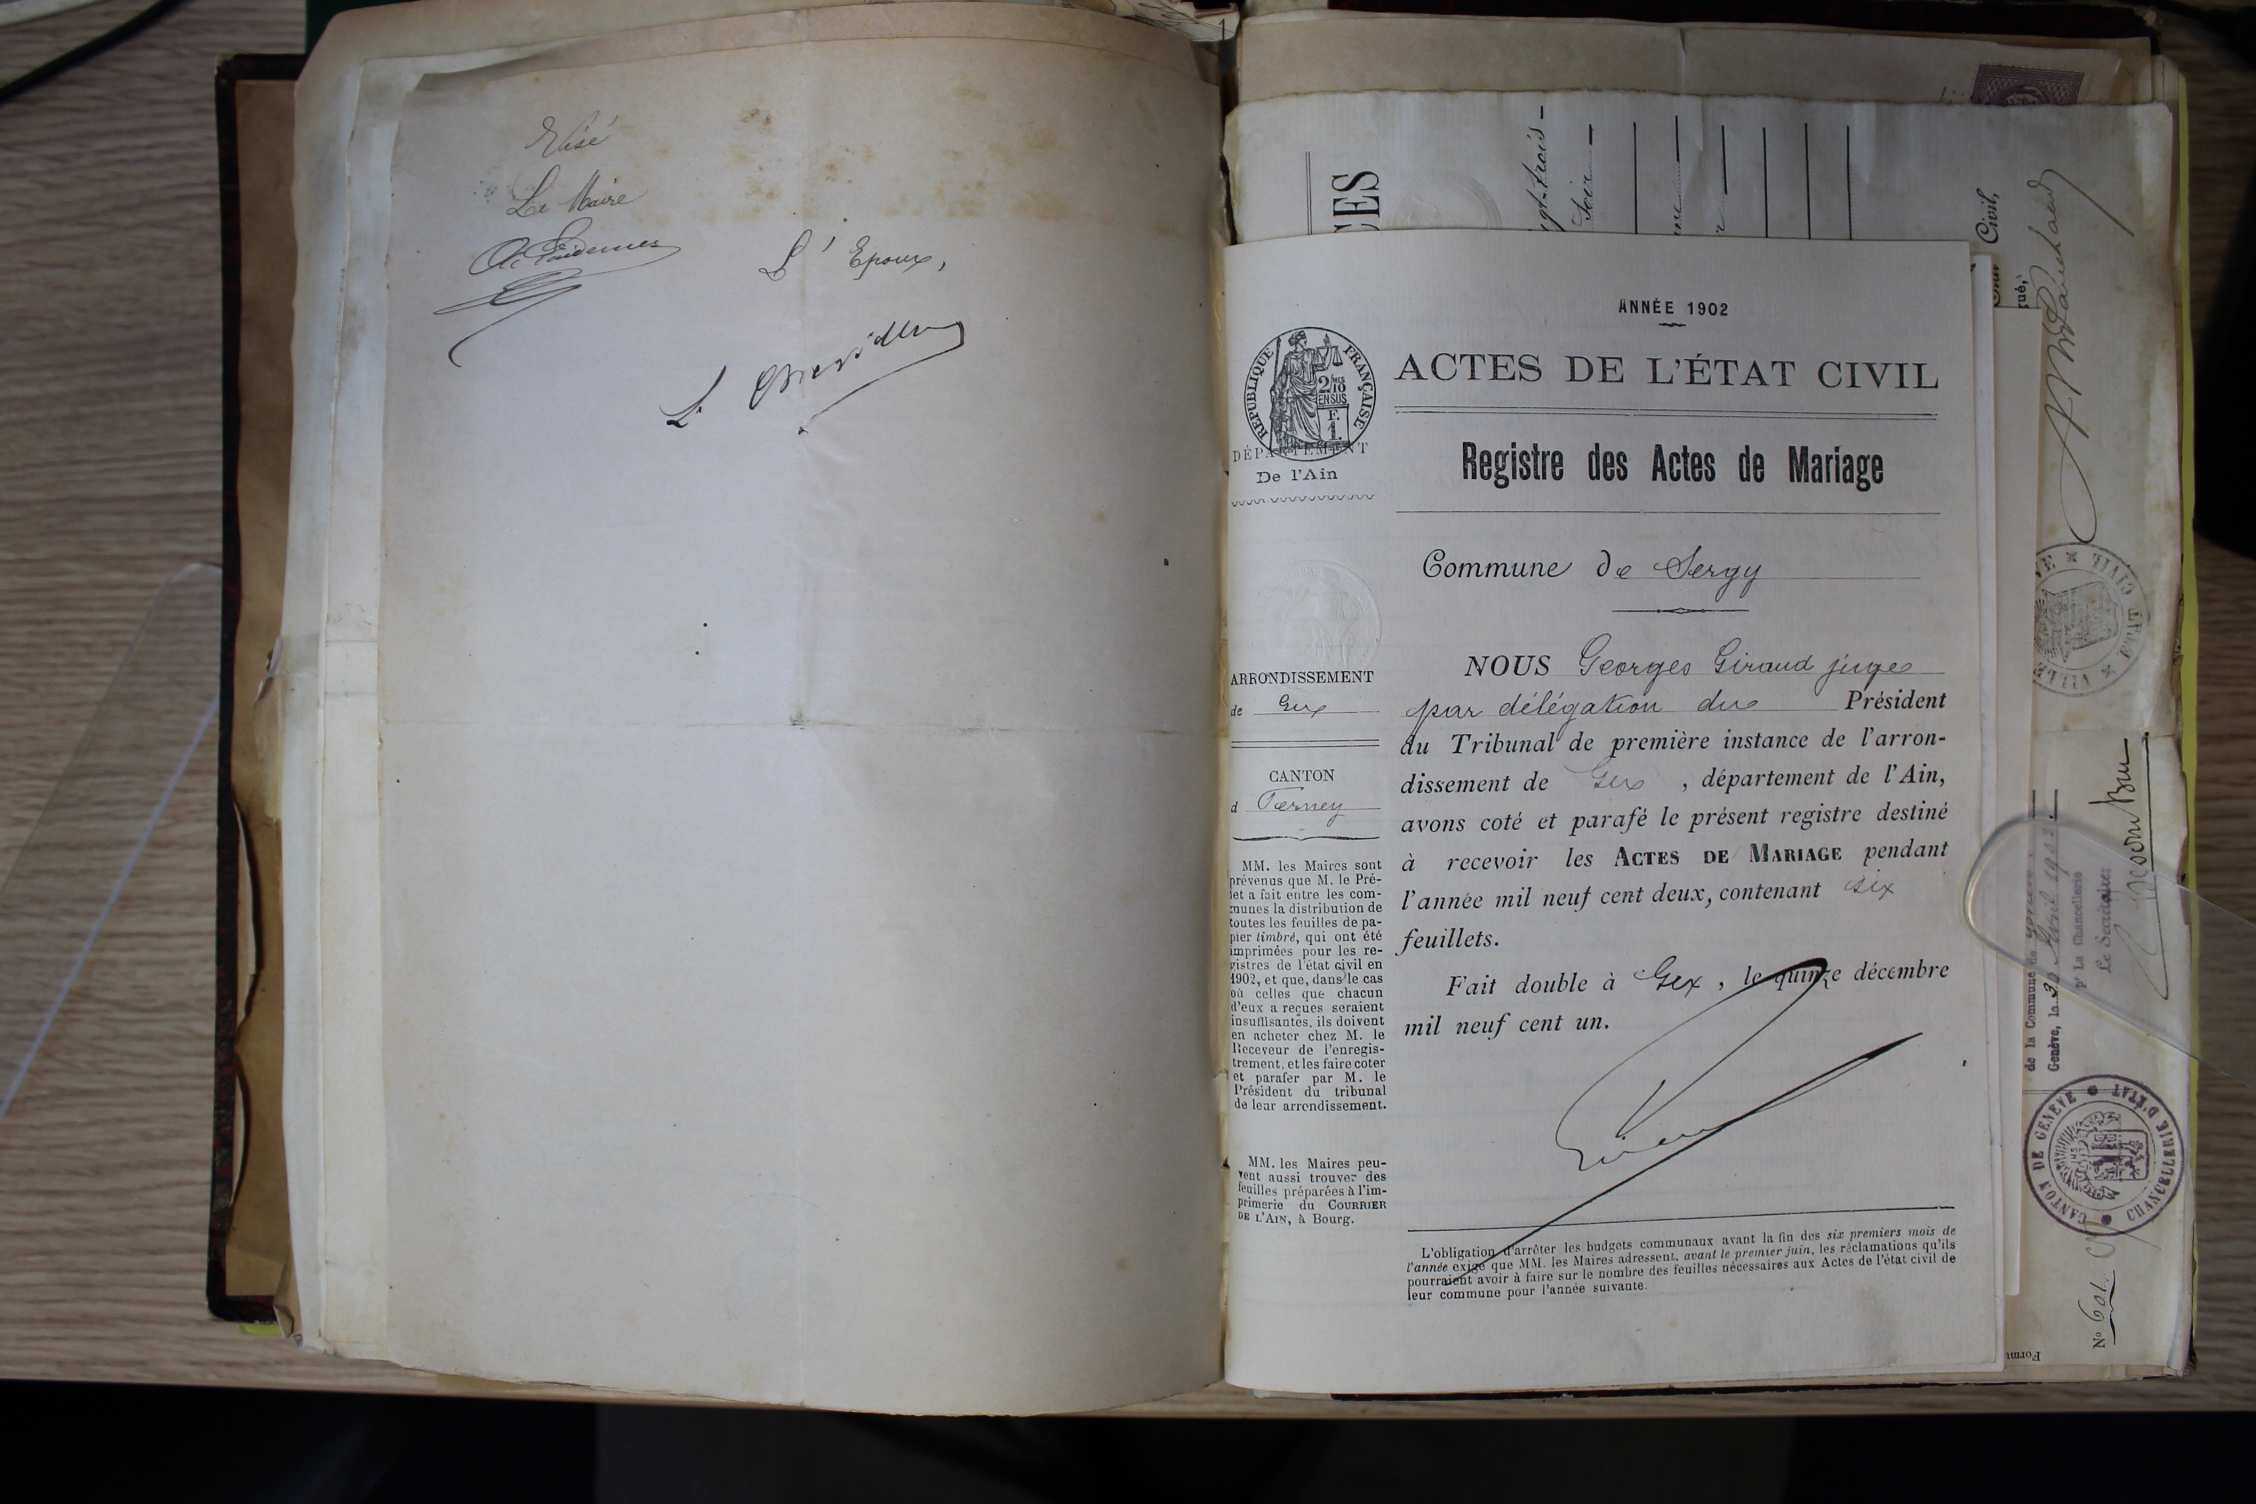 Visé
Le Maire
L'Epoux,
ANNÉE 1902
RÉPUBLIQUE FRANÇAISE
2/10 MES
EN SUS
F.
1.
ACTES DE L'ÉTAT CIVIL
Registre des Actes de Mariage
DÉPARTEMENT
De l'Ain
Commune de Sergy
ARRONDISSEMENT
de Gex
CANTON
d Ferney
MM. les Maires sont
prévenus que M. le Pré-
fet a fait entre les com-
munes la distribution de
toutes les feuilles de pa-
pier timbré, qui ont été
imprimées pour les re-
gistres de l'état civil en
1902, et que, dans le cas
où celles que chacun
d'eux a reçues seraient
insuffisantes, ils doivent
en acheter chez M. le
Receveur de l'enregis-
trement, et les faire coter
et parafer par M. le
Président du tribunal
de leur arrondissement.
MM. les Maires peu-
vent aussi trouver des
feuilles préparées à l'im-
primerie du COURRIER
DE L'AIN, à Bourg.
NOUS Georges Giraud juge
par délégation du Président
du Tribunal de première instance de l'arron-
dissement de Gex , département de l'Ain,
avons coté et parafé le présent registre destiné
à recevoir les ACTES DE MARIAGE pendant
l'année mil neuf cent deux, contenant six
feuillets.
Fait double à Gex , le quinze décembre
mil neuf cent un.
L'obligation d'arrêter les budgets communaux avant la fin des six premiers mois de
l'année exige que MM. les Maires adressent, avant le premier juin, les réclamations qu'ils
pourraient avoir à faire sur le nombre des feuilles nécessaires aux Actes de l'état civil de
leur commune pour l'année suivante.
CES
Civil,
VILLE
ÉTAT CIVIL
de la Commune de
Genève, le
Pr La Chancellerie
Le Secrétaire
CANTON DE GENÈVE
CHANCELLERIE D'ÉTAT
No
Form